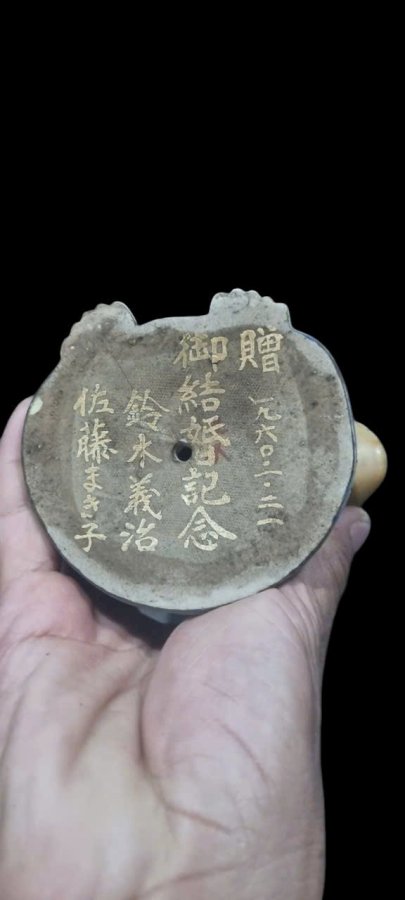 贈 一九六〇・二・二一
御結婚記念
鈴木義治
佐藤まき子